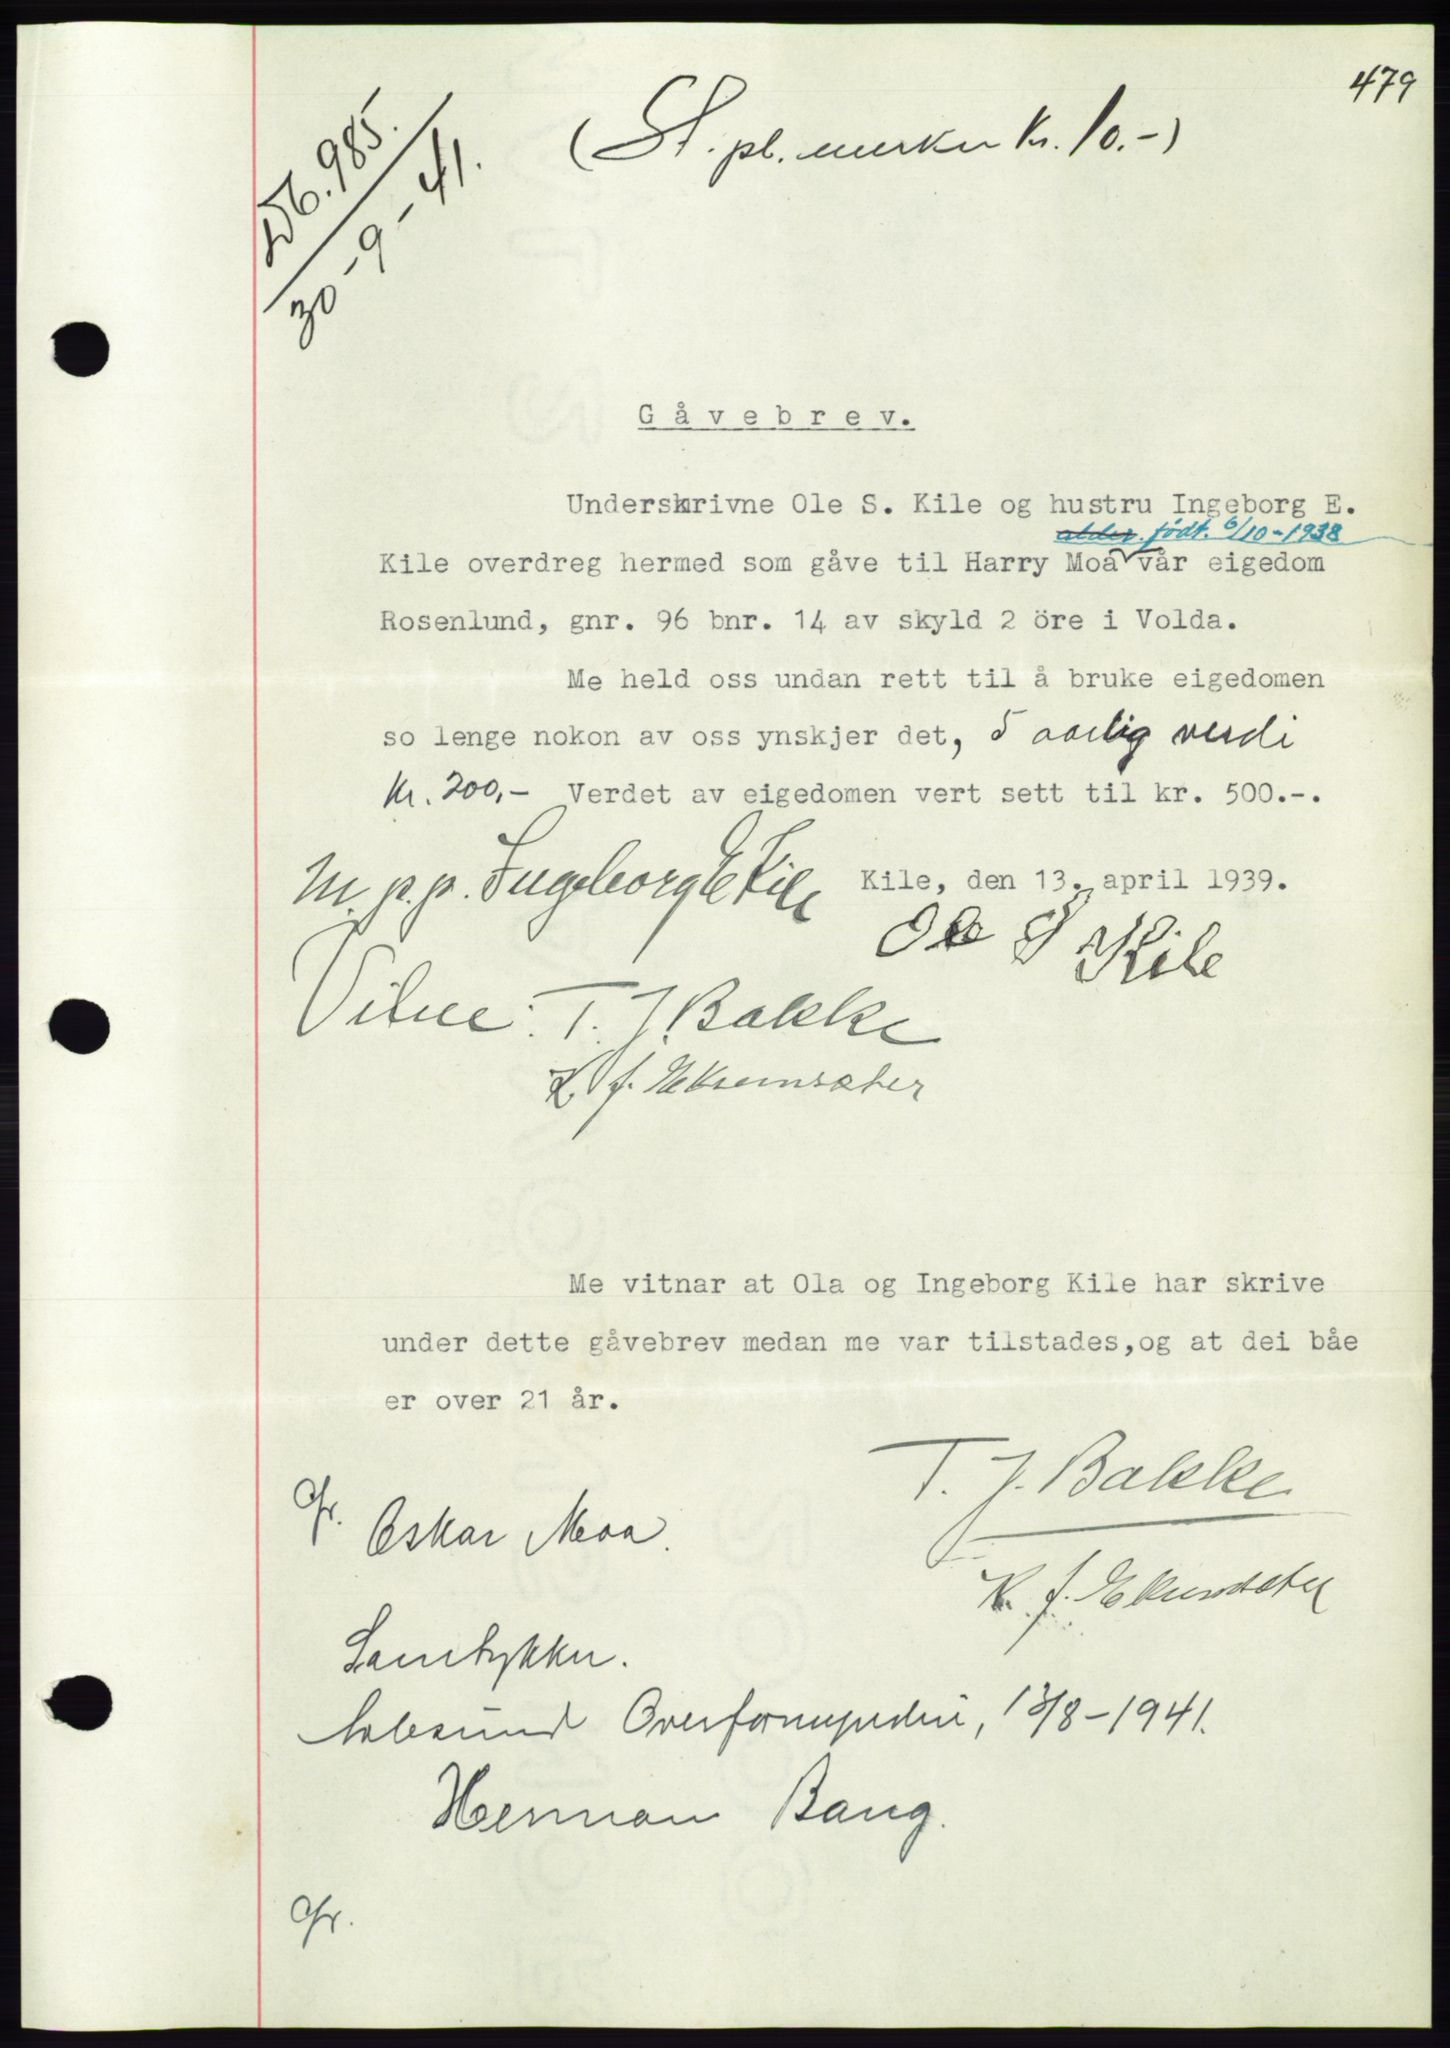 479
Db. 985.
30-9-41.
(St. pl. merker kr. 10.-)
Gåvebrev.
Underskrivne Ole S. Kile og hustru Ingeborg E.
alder. født. 6/10-1938
Kile overdreg hermed som gåve til Harry Moa vår eigedom
Rosenlund, gnr. 96 bnr. 14 av skyld 2 öre i Volda.
Me held oss undan rett til å bruke eigedomen
so lenge nokon av oss ynskjer det, 5 aarlig verdi
Kr. 200,- Verdet av eigedomen vert sett til kr. 500.-.
m.p.p. Ingeborg E Kile Kile, den 13. april 1939.
Ole S Kile
Vitne: T. J. Bakke
K. J. Ekremsæter
Me vitnar at Ola og Ingeborg Kile har skrive
under dette gåvebrev medan me var tilstades,og at dei båe
er over 21 år.
T. J. Bakke
Gr. Oskar Moa.
K. J. Ekremsæter
Samtykker.
Overformynderi, 13/8-1941.
Herman Bang.
Gr.